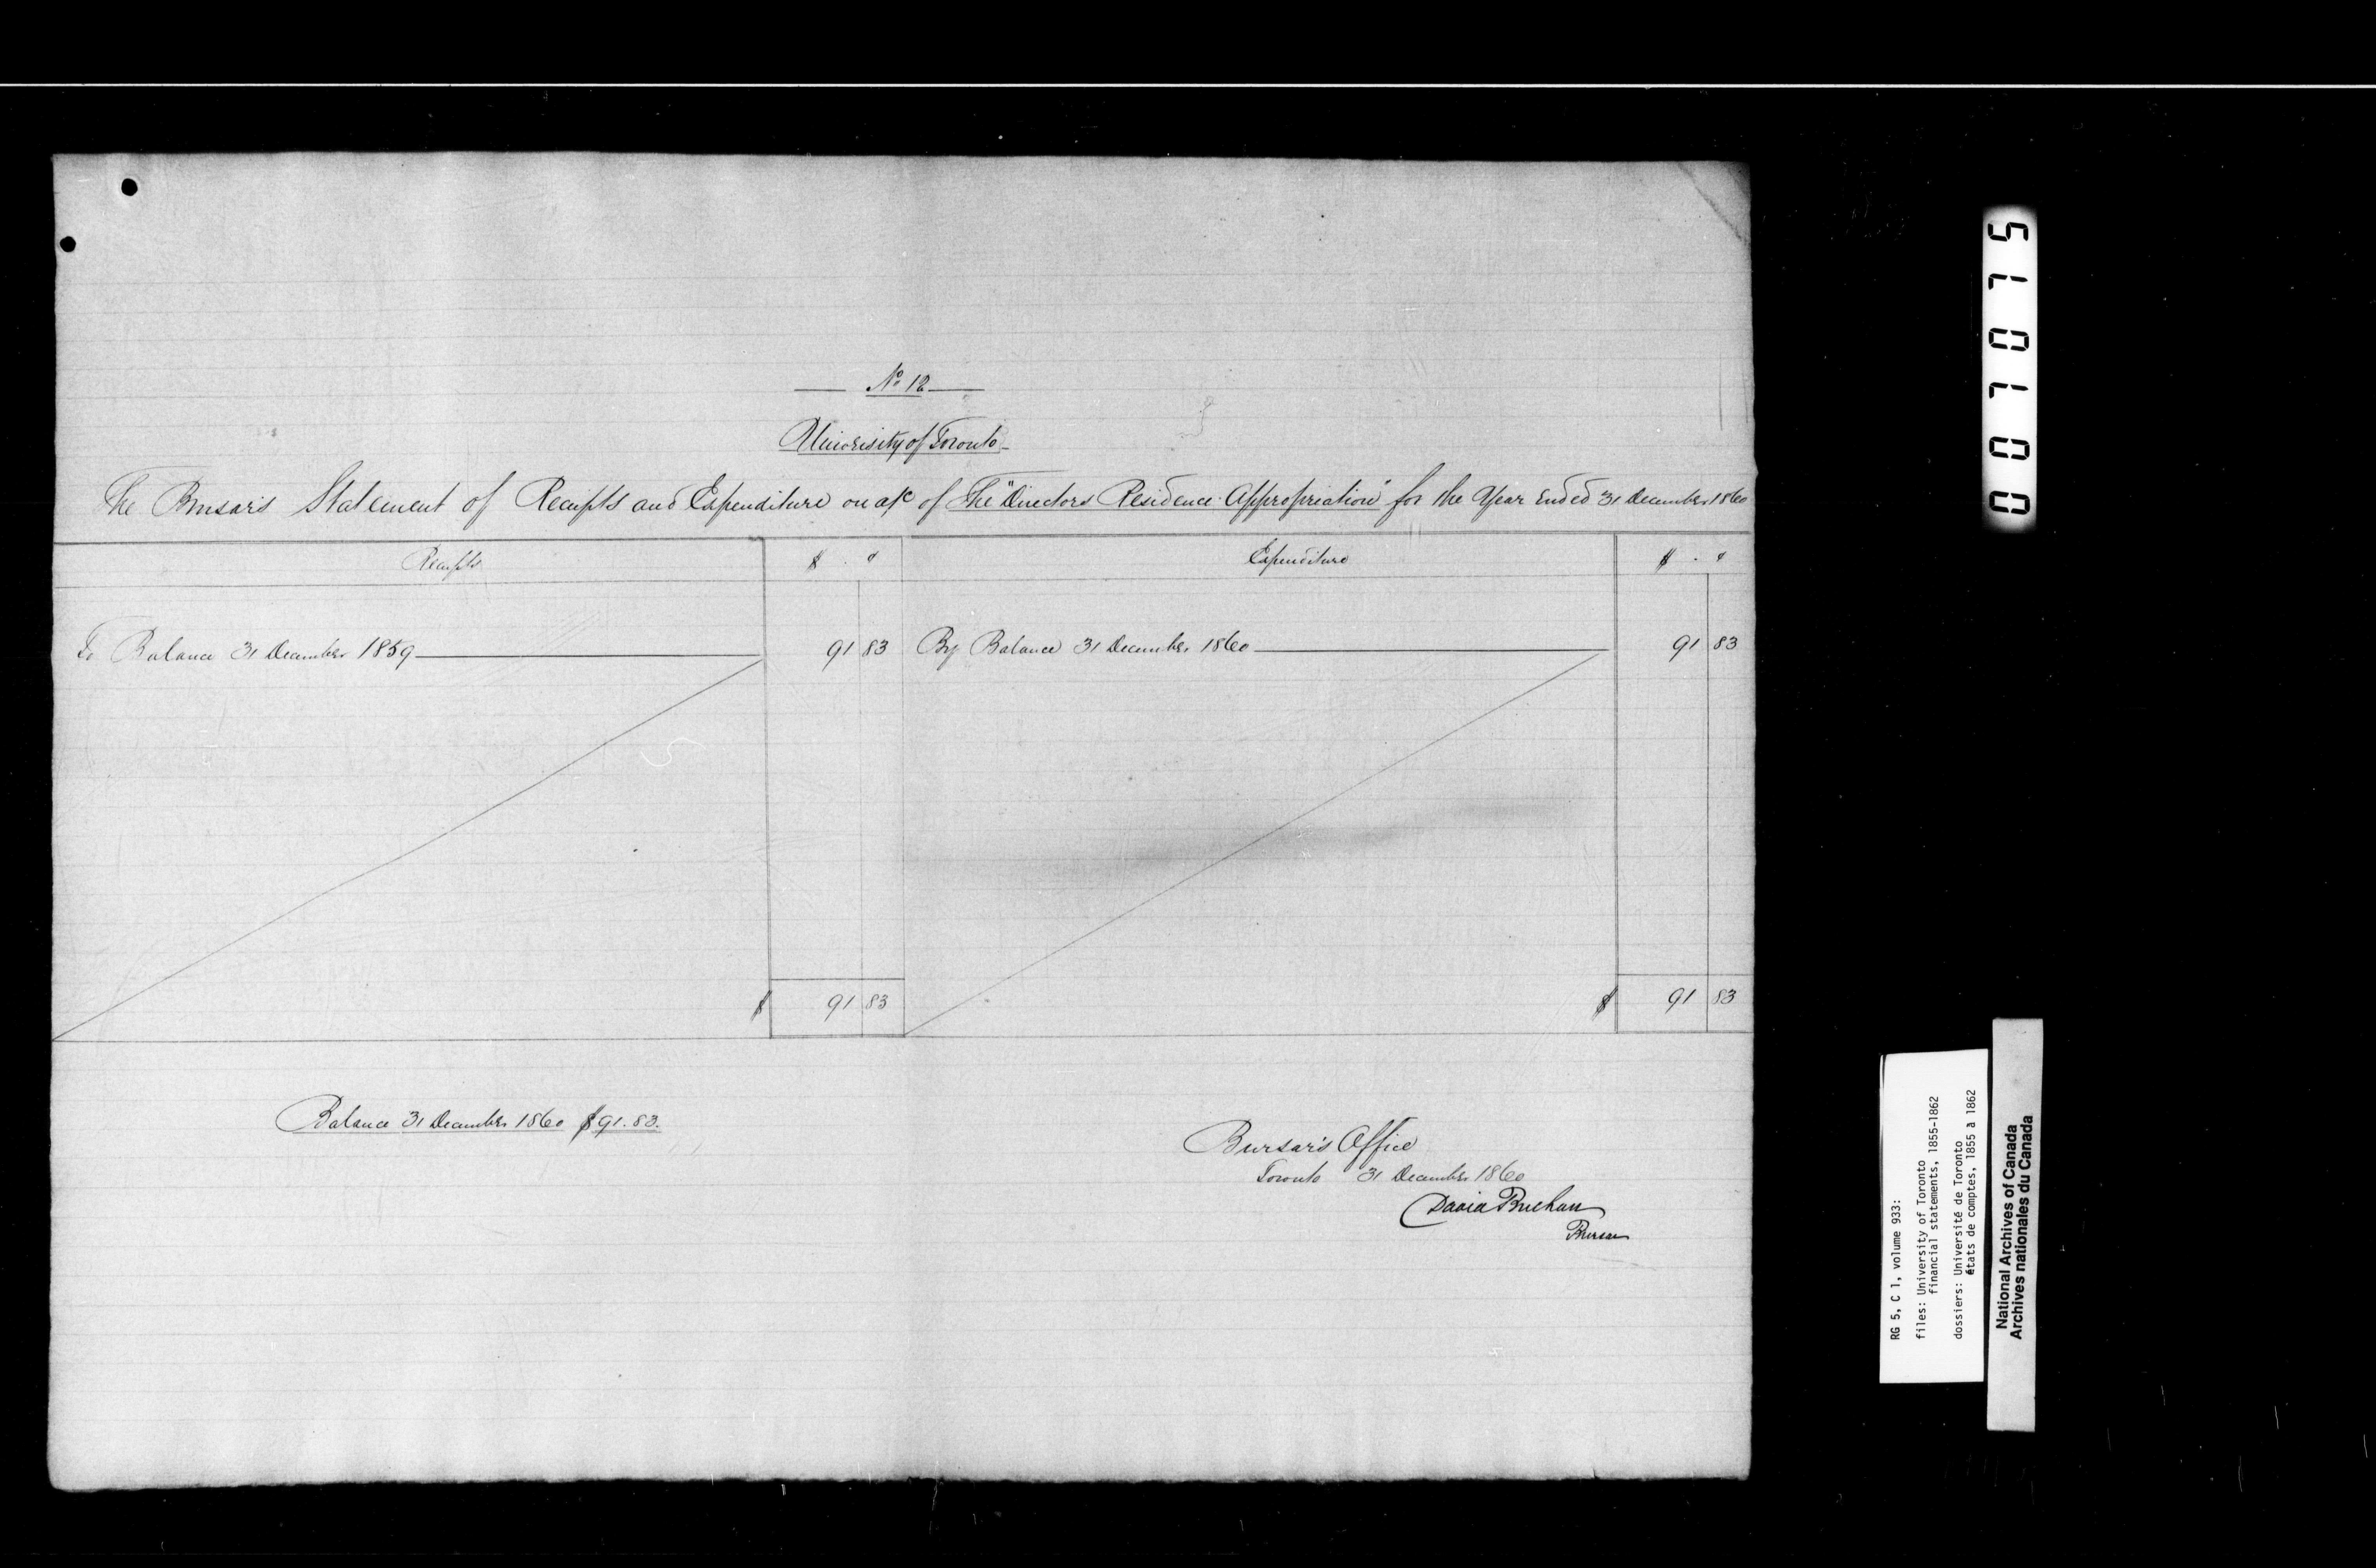 No 12
University of Toronto
The Bursar's Statement of Receipts and Expenditure on a/c of The "Directors Residence Appropriation" for the Year Ended 31 December 1860
Receipts $ . ¢ Expenditure $ . ¢
To Balance 31 December 1859 91 83 By Balance 31 December 1860 91 83
$ 91 83 $ 91 83
Balance 31 December 1860 $91.83.
Bursar's Office
Toronto 31 December 1860
David Buchan
Bursar
0 0 1 0 1 5
RG 5, C 1, volume 933:
files: University of Toronto
financial statements, 1855-1862
dossiers: Université de Toronto
états de comptes, 1855 à 1862
National Archives of Canada
Archives nationales du Canada